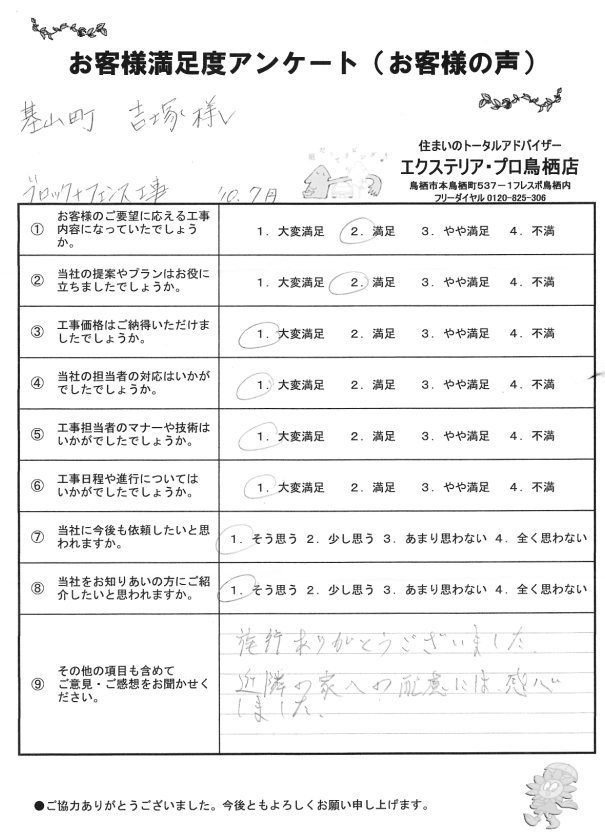 お客様満足度アンケート（お客様の声）
基山町 吉塚 様
住まいのトータルアドバイザー
エクステリア・プロ鳥栖店
鳥栖市本鳥栖町537－1フレスポ鳥栖内
フリーダイヤル 0120-825-306
ブロック+フェンス工事 '10.7月
① お客様のご要望に応える工事
内容になっていたでしょう
か。
1．大変満足 2．満足 3．やや満足 4．不満
② 当社の提案やプランはお役に
立ちましたでしょうか。
1．大変満足 2．満足 3．やや満足 4．不満
③ 工事価格はご納得いただけま
したでしょうか。
1．大変満足 2．満足 3．やや満足 4．不満
④ 当社の担当者の対応はいかが
でしたでしょうか。
1．大変満足 2．満足 3．やや満足 4．不満
⑤ 工事担当者のマナーや技術は
いかがでしたでしょうか。
1．大変満足 2．満足 3．やや満足 4．不満
⑥ 工事日程や進行については
いかがでしたでしょうか。
1．大変満足 2．満足 3．やや満足 4．不満
⑦ 当社に今後も依頼したいと思
われますか。
1．そう思う 2．少し思う 3．あまり思わない 4．全く思わない
⑧ 当社をお知りあいの方にご紹
介したいと思われますか。
1．そう思う 2．少し思う 3．あまり思わない 4．全く思わない
⑨ その他の項目も含めて
ご意見・ご感想をお聞かせく
ださい。
施行ありがとうございました。
近隣の家への配慮には、感心
しました。
●ご協力ありがとうございました。今後ともよろしくお願い申し上げます。